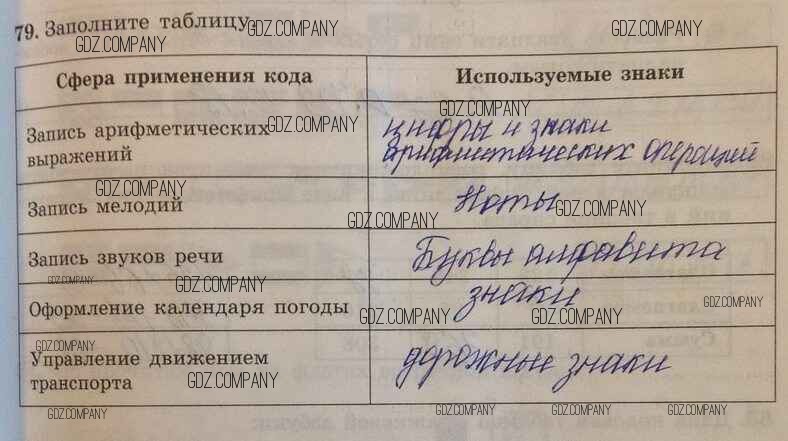 79. Заполните таблицу.
GDZ.COMPANY GDZ.COMPANY GDZ.COMPANY
Сфера применения кода Используемые знаки
GDZ.COMPANY
Запись арифметических GDZ.COMPANY цифры и знаки
выражений арифметических операций
GDZ.COMPANY
Запись мелодий Ноты GDZ.COMPANY
GDZ.COMPANY
Запись звуков речи Буквы алфавита
GDZ.COMPANY GDZ.COMPANY
Оформление календаря погоды знаки GDZ.COMPANY
GDZ.COMPANY GDZ.COMPANY
Управление движением дорожные знаки GDZ.COMPANY
транспорта GDZ.COMPANY
GDZ.COMPANY GDZ.COMPANY GDZ.COMPANY GDZ.COMPANY